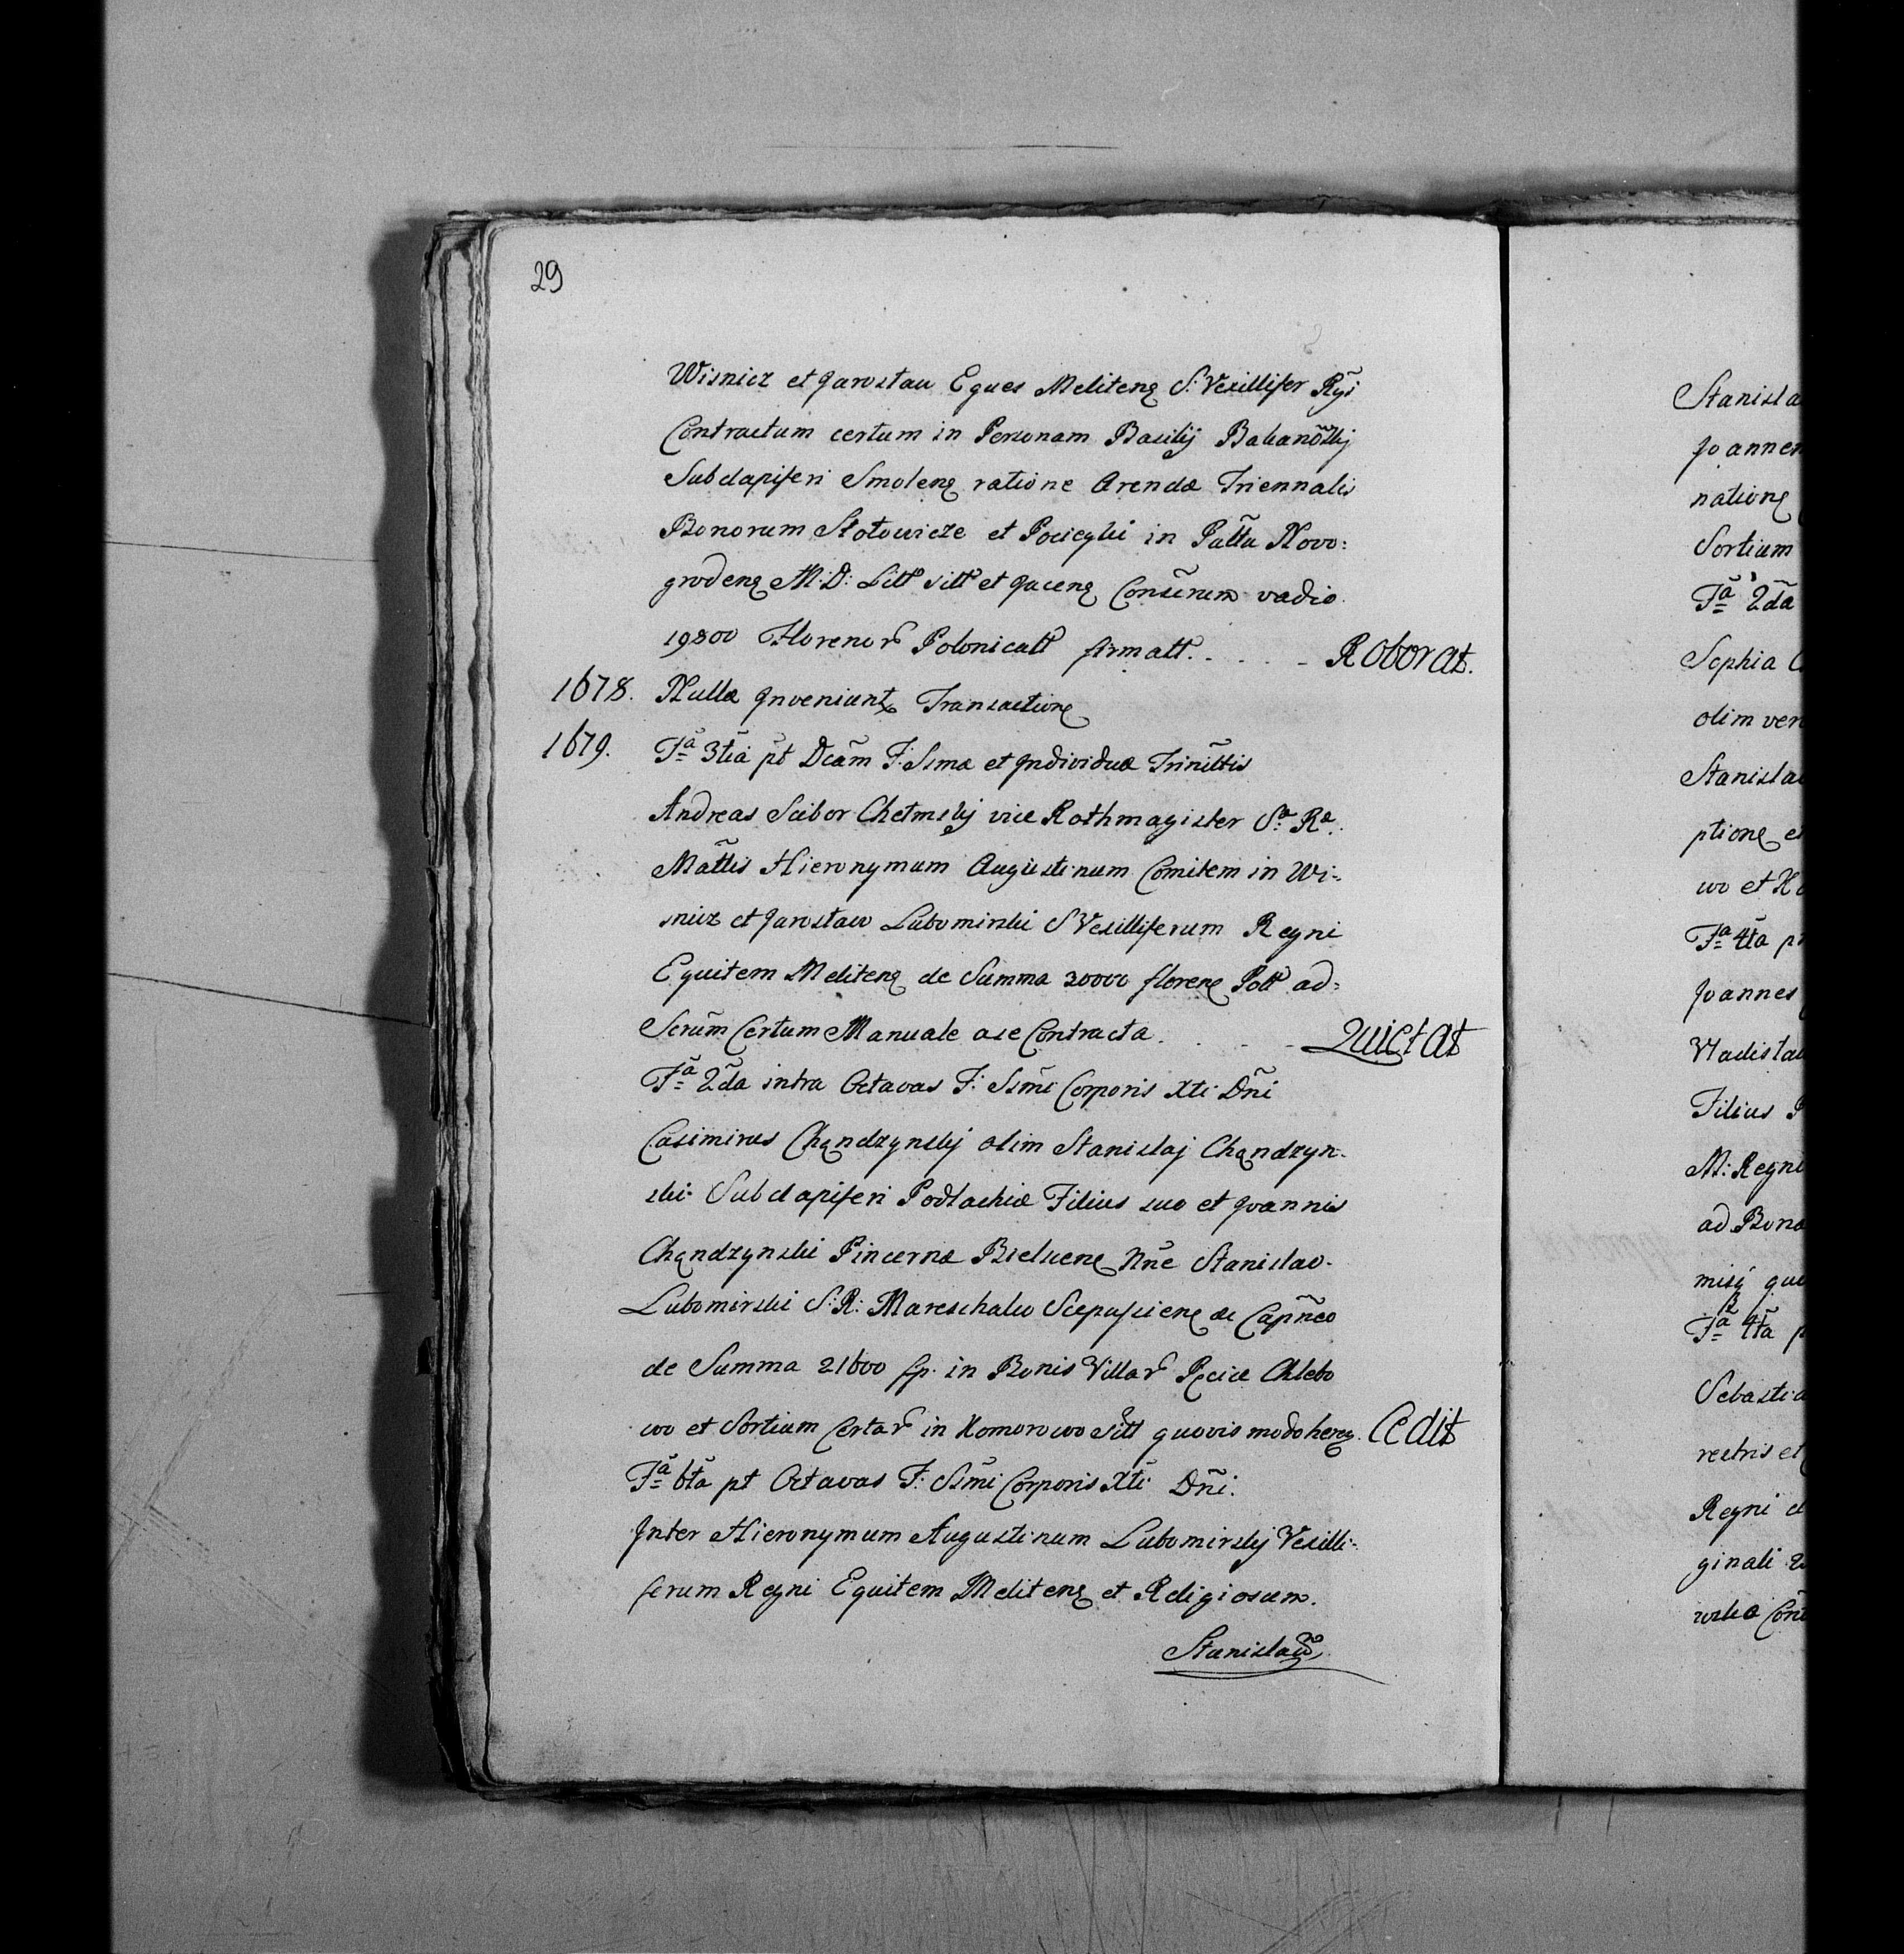 29
Wisnicz et Jarosław Eques Meliteng S: Vexillifer Rgi
Contractum certum in Personam Basilij
Subdapiferi Smoleng ratione Arendæ Triennalis
Bonorum Stołowicze et Pocieyki in Pałtu Novo:
grodeng M: D: Litt sitt et Jaceng vadio
19800 Florenor Polonicatt firmatt. . . . . Roborat.
1678. Nullæ Inveniunt Transactione
1679. Fa 3tia pt Dcam F: Ssmæ et Individuæ Trinittis
Andreas Scibor Chełmskj vice Rothmagister Sæ Ræ
Mattis Hieronymum Augustinum Comitem in Wi-
snicz et Jarosław Lubomirski S Vexilliferum Regni
Equitem Meliteng de Summa 30000 floreng Poll ad
Scrum Certum Manuale ase Contracta . . . . Quictat
Fa 2da intra Octavas F: Ssmi Corporis Xti Dni
Casimirus Chądzynskj olim Stanislaj Chądzyn-
ski Subdapiferi Podlachiæ Filius suo et Joannis
Chądzynski Pincernæ Bielsceng Nne Stanislao
Lubomirski S: R: Mareschalco Scepusieng &c Capneo
de Summa 21600 fp. in Bonis Villar Pęcice Chlebo
wo et Sortium Certar in Komorowo sitt quovis modo hereg. Cedit
Fa 6ta pt Octavas F: Ssmi Corporis Xti Dni.
Inter Hieronymum Augustinum Lubomirskj Vexilli-
ferum Regni Equitem Meliteng et Religiosum.
Stanislaum
Stanisla
Joannem
natione
Sortium
Fa 2da
Sophia
olim ven
Stanislau
ptione et
wo et
Fa 4ta p
Joannes
Vladislau
Filius
M: Regni
ad Bona
misij qu
Fa 4ta p
Sebastia
rectris et
Regni
ginali